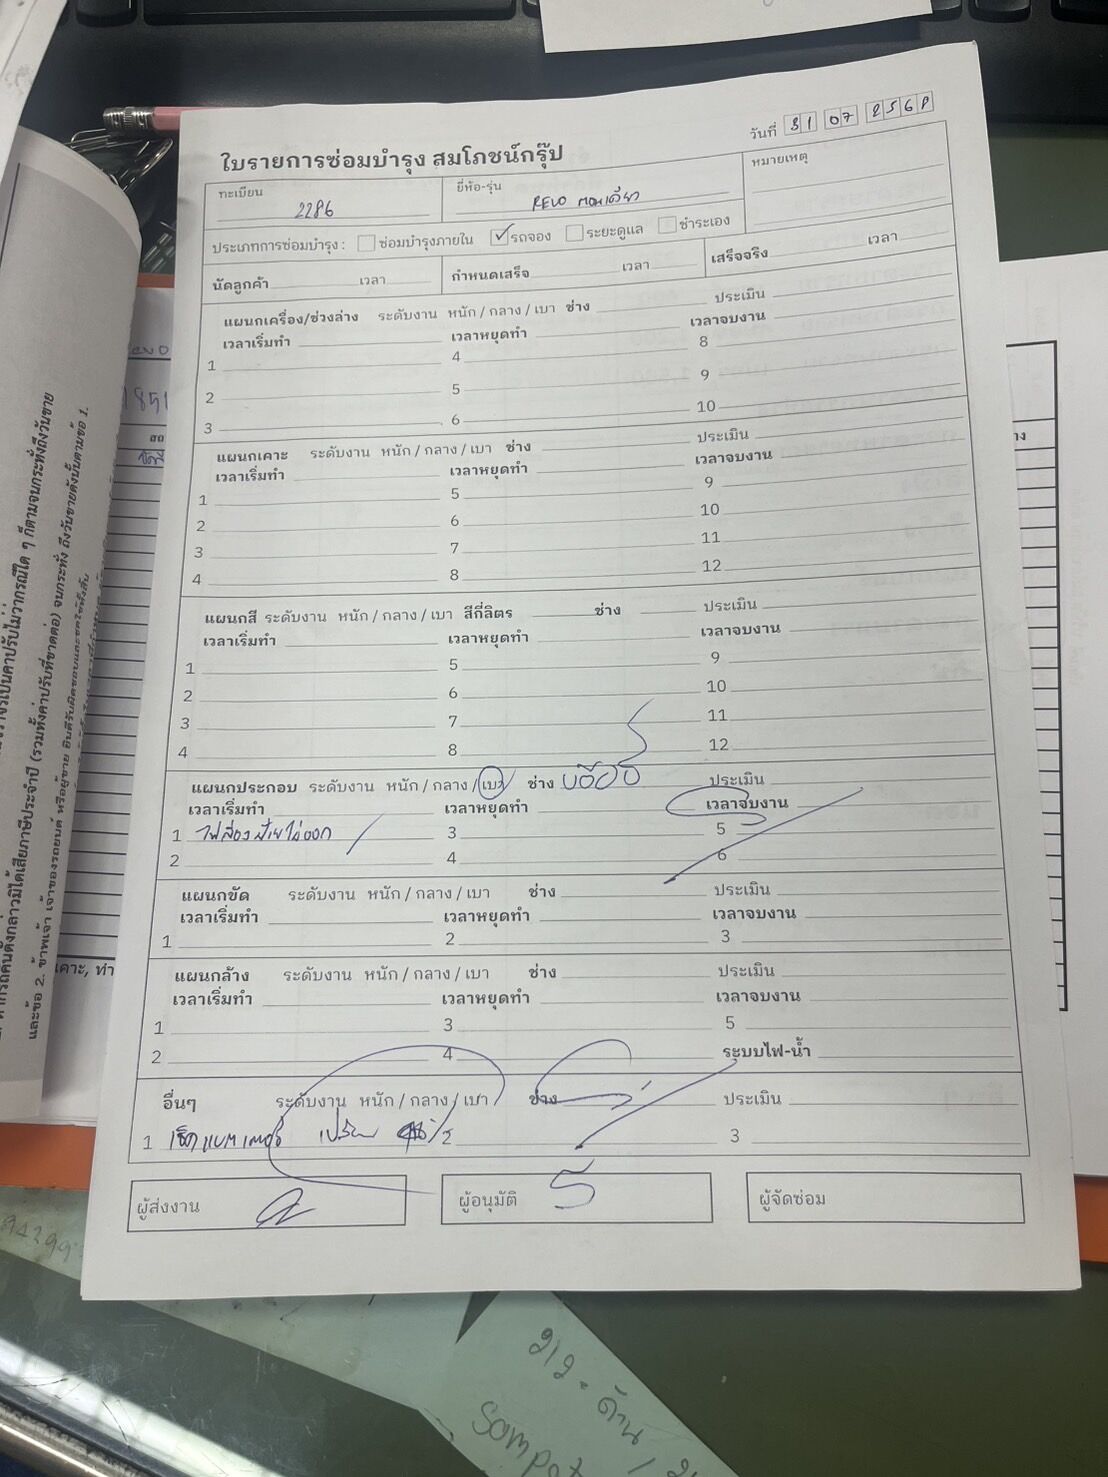 วันที่ 31 07 256
ใบรายการซ่อมบำรุง สมโภชน์กรุ๊ป
ทะเบียน 2286 ยี่ห้อ-รุ่น REVO ตอนเดียว หมายเหตุ
ประเภทการซ่อมบำรุง : ซ่อมบำรุงภายใน ✓ รถจอง ระยะดูแล ชำระเอง
นัดลูกค้า เวลา กำหนดเสร็จ เวลา เสร็จจริง เวลา
แผนกเครื่อง/ช่วงล่าง ระดับงาน หนัก / กลาง / เบา ช่าง ประเมิน
เวลาเริ่มทำ เวลาหยุดทำ เวลาจบงาน
1 4 8
2 5 9
3 6 10
แผนกเคาะ ระดับงาน หนัก / กลาง / เบา ช่าง ประเมิน
เวลาเริ่มทำ เวลาหยุดทำ เวลาจบงาน
1 5 9
2 6 10
3 7 11
4 8 12
แผนกสี ระดับงาน หนัก / กลาง / เบา สีกี่ลิตร ช่าง ประเมิน
เวลาเริ่มทำ เวลาหยุดทำ เวลาจบงาน
1 5 9
2 6 10
3 7 11
4 8 12
แผนกประกอบ ระดับงาน หนัก / กลาง / เบา ช่าง ประเมิน
เวลาเริ่มทำ เวลาหยุดทำ เวลาจบงาน
1 ไฟส่องป้ายไม่ออก 3 5
2 4 6
แผนกขัด ระดับงาน หนัก / กลาง / เบา ช่าง ประเมิน
เวลาเริ่มทำ เวลาหยุดทำ เวลาจบงาน
1 2 3
แผนกล้าง ระดับงาน หนัก / กลาง / เบา ช่าง ประเมิน
เวลาเริ่มทำ เวลาหยุดทำ เวลาจบงาน
1 3 5
2 4 ระบบไฟ-น้ำ
อื่นๆ ระดับงาน หนัก / กลาง / เบา ช่าง ประเมิน
1 เช็คแบตเตอรี่ 2 3
ผู้ส่งงาน ผู้อนุมัติ ผู้จัดซ่อม
1851
และข้อ 2. ข้าพเจ้า เจ้าของรถยนต์ หรือผู้ขาย ยินดีรับผิดชอบและชดใช้ทั้งสิ้น
เคาะ, ทำ
212 - ด้าน /